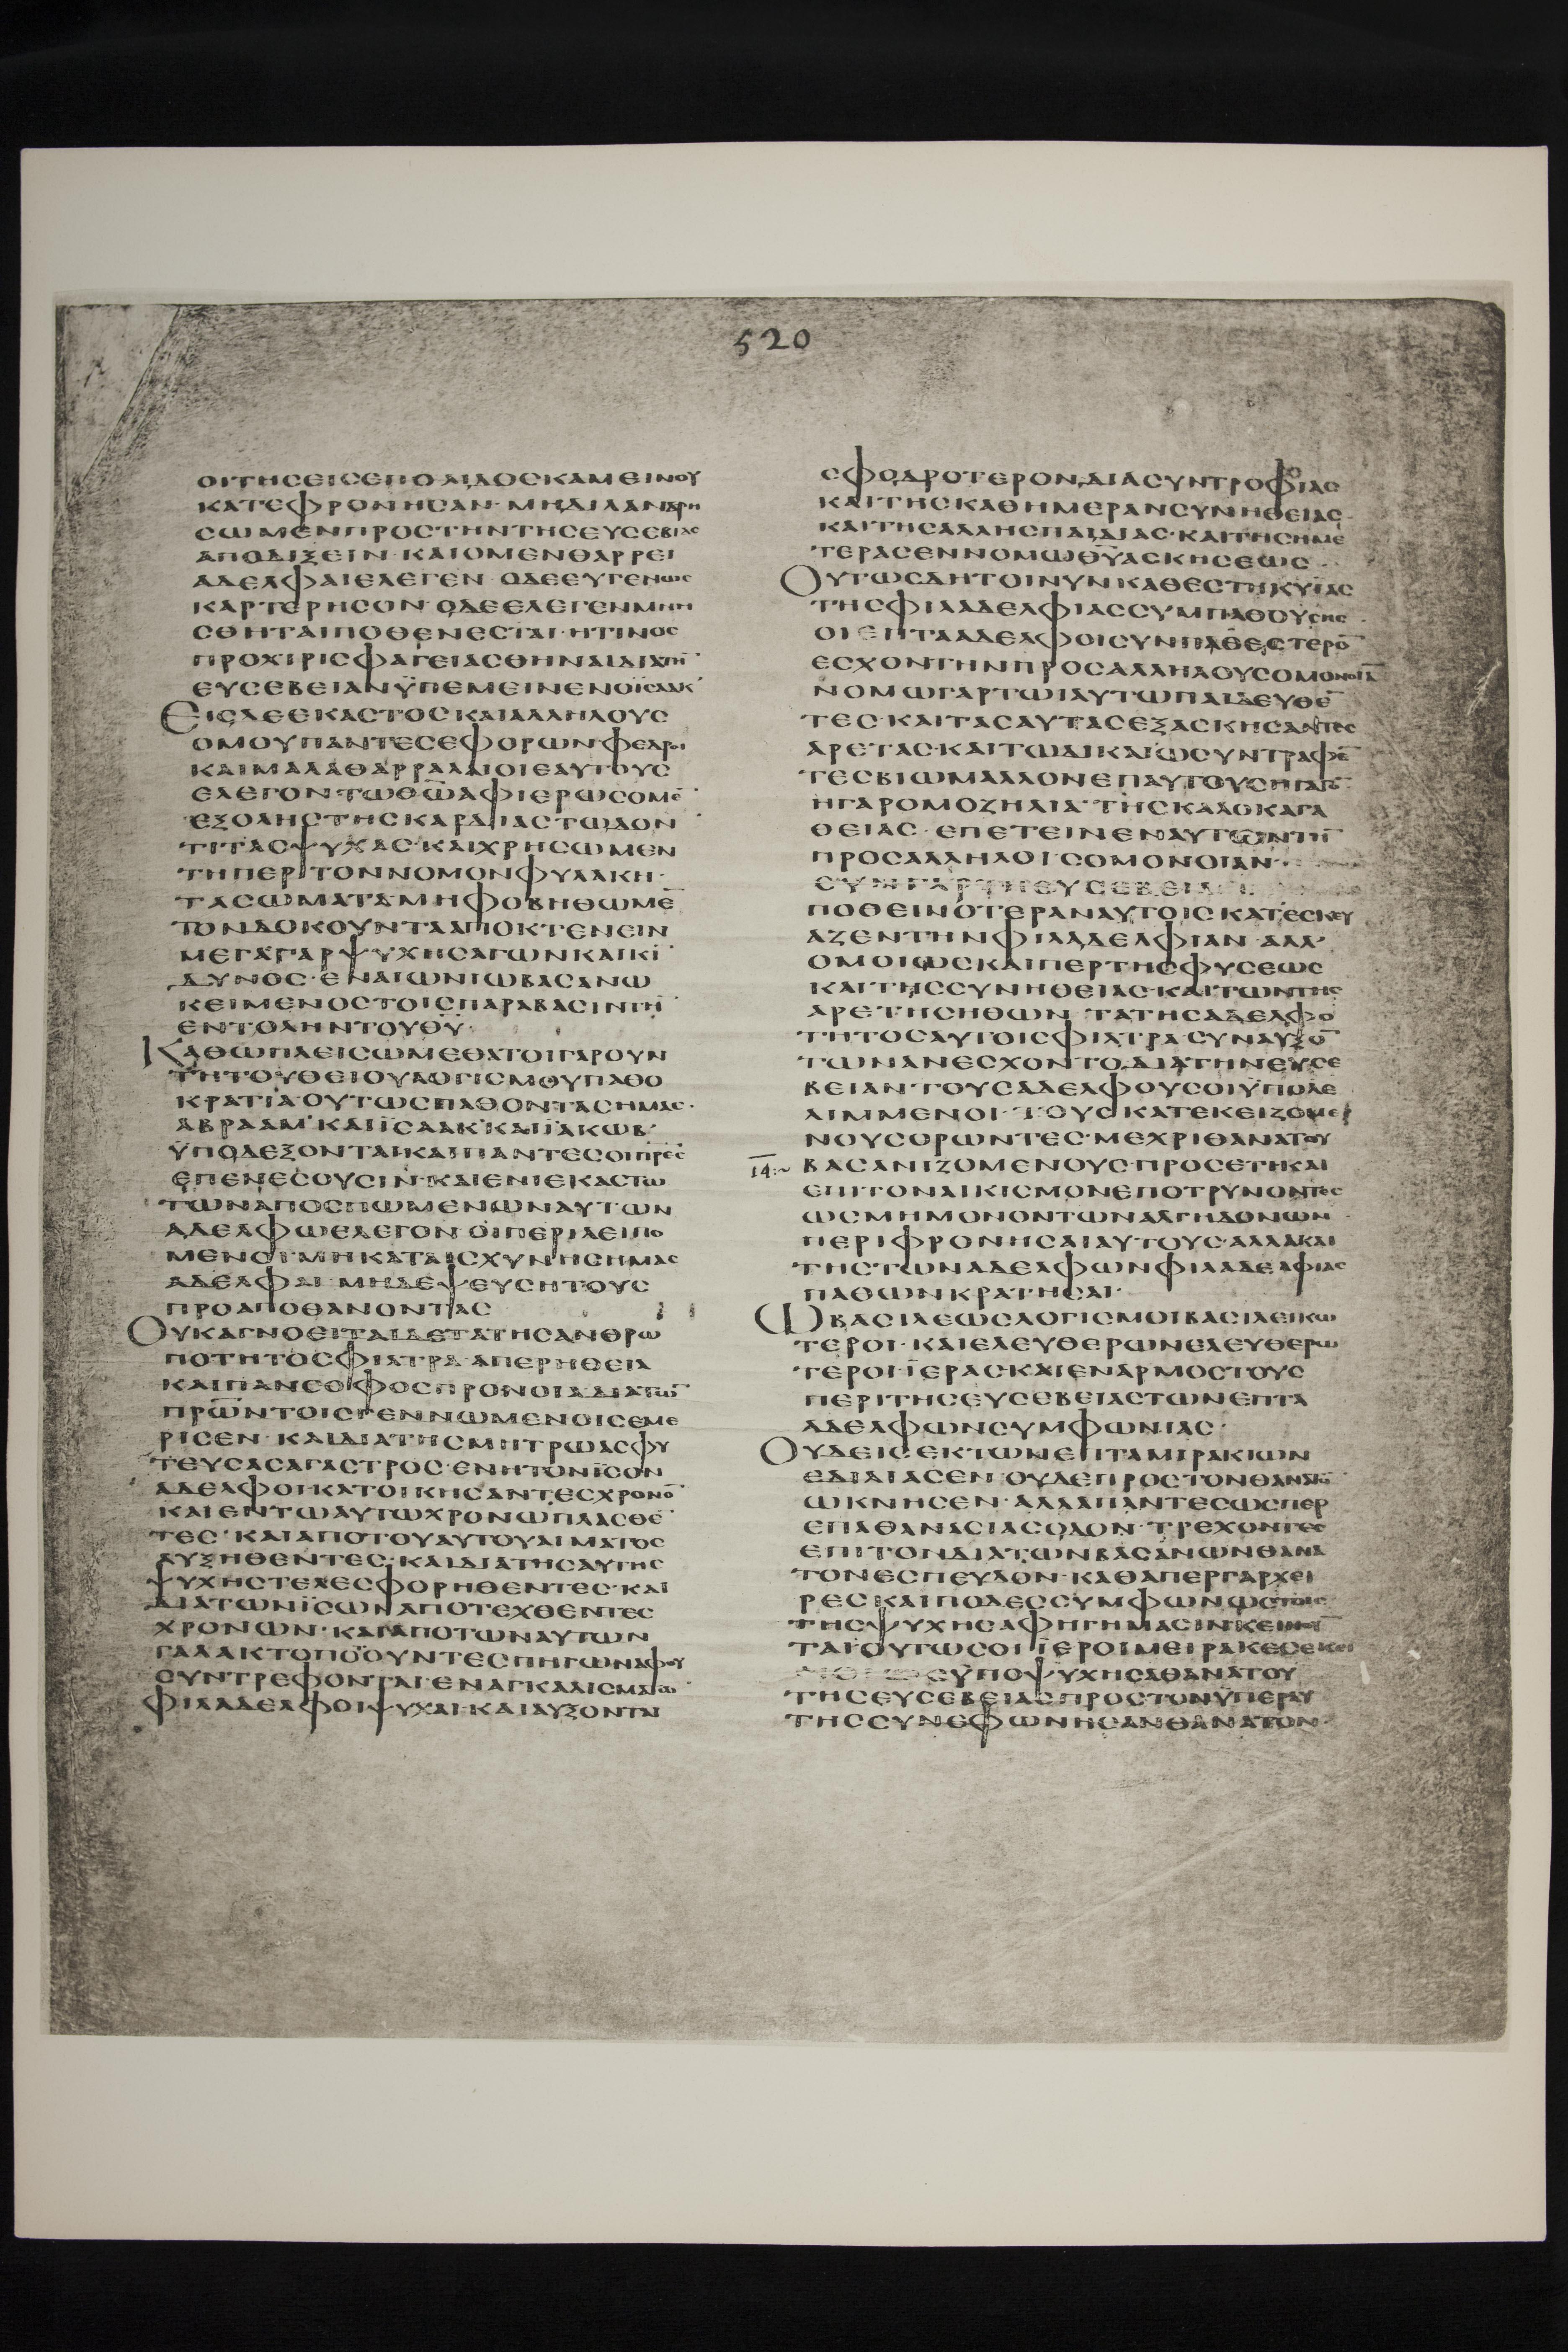 520
ΟΙΤΗCΕΙCΕΠΟΛΙΔΟCΚΑΜΕΙΝΟΥ
ΚΑΤΕΦΡΟΝΗCΑΝ·ΜΗΔΙΛΑΝΔΡΗ
CΩΜΕΝΠΡΟCΤΗΝΤΗCΕΥCΕΒΙΑC
ΑΠΟΔΙΞΕΙΝ·ΚΑΙΟΜΕΝΘΑΡΡΕΙ
ΑΔΕΛΦΑΙΕΛΕΓΕΝ·ΟΔΕΕΥΓΕΝΩC
ΚΑΡΤΕΡΗCΟΝ·ΟΔΕΕΛΕΓΕΝΜΝΗ
CΘΗΤΑΙΠΟΘΕΝΕCΤΑΙ·ΗΤΙΝΟC
ΠΡΟΧΙΡΙCΦΑΓΕΙΑCΘΗΝΑΙΔΙΑΤΗ̅
ΕΥCΕΒΕΙΑΝΫΠΕΜΕΙΝΕΝΟΪCΑΑΚ
ΕΙCΔΕΕΚΑCΤΟCΚΑΙΑΛΛΗΛΟΥC
ΟΜΟΥΠΑΝΤΕCΕΦΟΡΩΝΦΕΔΡΟΙ
ΚΑΙΜΑΛΑΘΑΡΡΑΛΑΙΟΙΕΑΥΤΟΥC
ΕΛΕΓΟΝ·ΤΩΘ̅Ω̅ΑΦΙΕΡΩCΟΜΕ̅
ΕΞΟΛΗCΤΗCΚΑΡΔΙΑCΤΩΔΟΝ
ΤΙΤΑCΨΥΧΑC·ΚΑΙΧΡΗCΩΜΕΝ
ΤΗΠΕΡΙΤΟΝΝΟΜΟΝΦΥΛΑΚΗ·
ΤΑCΩΜΑΤΑΜΗΦΟΒΗΘΩΜΕ̅
ΤΟΝΔΟΚΟΥΝΤΑΑΠΟΚΤΕΝΕΙΝ
ΜΕΓΑCΓΑΡΨΥΧΗCΑΓΩΝΚΑΙΚΙ̅
ΔΥΝΟC·ΕΝΑΙΩΝΙΩΒΑCΑΝΩ
ΚΕΙΜΕΝΟCΤΟΙCΠΑΡΑΒΑCΙΝΤΗ̅
ΕΝΤΟΛΗΝΤΟΥΘ̅Υ̅·
ΚΑΘΩΠΛΕΙCΩΜΕΘΑΤΟΙΓΑΡΟΥΝ
ΤΗΤΟΥΘΕΙΟΥΛΟΓΙCΜΟΥΠΑΘΟ
ΚΡΑΤΙΑΟΥΤΩCΠΑΘΟΝΤΑCΗΜΑC·
ΑΒΡΑΑΜ·ΚΑΙΪCΑΑΚ·ΚΑΙΪΑΚΩΒ·
ΫΠΟΔΕΞΟΝΤΑΙ·ΚΑΙΠΑΝΤΕCΟΙΠΡ̅Ε̅C̅
ΕΠΕΝΕCΟΥCΙΝ·ΚΑΙΕΝΙΕΚΑCΤΩ
ΤΩΝΑΠΟCΠΩΜΕΝΩΝΑΥΤΩΝ
ΑΔΕΛΦΩΕΛΕΓΟΝ·ΟΙΠΕΡΙΛΕΙΠΟ
ΜΕΝΟΙ·ΜΗΚΑΤΑΙCΧΥΝΗCΗΜΑC
ΑΔΕΛΦΑΙ·ΜΗΔΕΨΕΥCΗΤΟΥC
ΠΡΟΑΠΟΘΑΝΟΝΤΑC
ΟΥΚΑΓΝΟΕΙΤΑΙΔΕΤΑΤΗCΑΝΘΡΩ
ΠΟΤΗΤΟCΦΙΛΤΡΑ·ΑΠΕΡΗΘΕΙΑ
ΚΑΙΠΑΝCΟΦΟCΠΡΟΝΟΙΑΔΙΑΤΩ̅
ΠΡ̅Ω̅ΝΤΟΙCΓΕΝΝΩΜΕΝΟΙCΕΜΕ
ΡΙCΕΝ·ΚΑΙΔΙΑΤΗCΜΗΤΡΩΑCΦΥ
ΤΕΥCΑCΑΓΑCΤΡΟC·ΕΝΗΤΟΝΪCΟΝ
ΑΔΕΛΦΟΙ·ΚΑΤΟΙΚΗCΑΝΤΕCΧΡΟΝΟ̅
ΚΑΙΕΝΤΩΑΥΤΩΧΡΟΝΩΠΛΑCΘΕ̅
ΤΕC·ΚΑΙΑΠΟΤΟΥΑΥΤΟΥΑΙΜΑΤΟC
ΑΥΞΗΘΕΝΤΕC·ΚΑΙΔΙΑΤΗCΑΥΤΗC
ΨΥΧΗCΤΕΛΕCΦΟΡΗΘΕΝΤΕC·ΚΑΙ
ΔΙΑΤΩΝΪCΩΝΑΠΟΤΕΧΘΕΝΤΕC
ΧΡΟΝΩΝ·ΚΑΙΑΠΟΤΩΝΑΥΤΩΝ
ΓΑΛΑΚΤΟΠΟΟΥΝΤΕCΠΗΓΩΝΑΦΟΥ
CΥΝΤΡΕΦΟΝΤΑΙ·ΕΝΑΓΚΑΛΙCΜΑΤΩ̅
ΦΙΛΑΔΕΛΦΟΙΨΥΧΑΙ·ΚΑΙΑΥΞΟΝΤΑΙ
CΦΟΔΡΟΤΕΡΟΝ·ΔΙΑCΥΝΤΡΟΦΙΑC
ΚΑΙΤΗCΚΑΘΗΜΕΡΑΝCΥΝΗΘΕΙΑC·
ΚΑΙΤΗCΑΛΛΗCΠΑΙΔΙΑC·ΚΑΙΤΗCΗΜΕ
ΤΕΡΑCΕΝΝΟΜΩΘ̅Υ̅ΑCΚΗCΕΩC·
ΟΥΤΩCΔΗΤΟΙΝΥΝΚΑΘΕCΤΗΚΥΙΑC
ΤΗCΦΙΛΑΔΕΛΦΙΑCCΥΜΠΑΘΟΥCΗC·
ΟΙΕΠΤΑΑΔΕΛΦΟΙCΥΝΠΑΘΕCΤΕΡΟ̅
ΕCΧΟΝΤΗΝΠΡΟCΑΛΛΗΛΟΥCΟΜΟΝΟΙΑ̅
ΝΟΜΩΓΑΡΤΩΑΥΤΩΠΑΙΔΕΥΘΕ̅
ΤΕC·ΚΑΙΤΑCΑΥΤΑCΕΞΑCΚΗCΑΝΤΕC
ΑΡΕΤΑC·ΚΑΙΤΩΔΙΚΑΙΩCΥΝΤΡΑΦΕ̅
ΤΕCΒΙΩΜΑΛΛΟΝΕΠΑΥΤΟΥC
ΗΓΑΡΟΜΟΖΗΛΙΑ·ΤΗCΚΑΛΟΚΑΓΑ
ΘΕΙΑC·ΕΠΕΤΕΙΝΕΝΑΥΤΩΝΤΗ̅
ΠΡΟCΑΛΛΗΛΟΙCΟΜΟΝΟΙΑΝ·
CΥΝΓΑΡΤΗΕΥCΕΒΕΙΑ
ΠΟΘΕΙΝΟΤΕΡΑΝΑΥΤΟΙCΚΑΤΕCΚΕΥ
ΑΖΕΝΤΗΝΦΙΛΑΔΕΛΦΙΑΝ·ΑΛΛ
ΟΜΟΙΩCΚΑΙΠΕΡΤΗCΦΥCΕΩC
ΚΑΙΤΗCCΥΝΗΘΕΙΑC·ΚΑΙΤΩΝΤΗC
ΑΡΕΤΗCΗΘΩΝ·ΤΑΤΗCΑΔΕΛΦΟ
ΤΗΤΟCΑΥΤΟΙCΦΙΛΤΡΑCΥΝΑΥΞΟ̅
ΤΩΝΑΝΕCΧΟΝΤΟ·ΔΙΑΤΗΝΕΥCΕ
ΒΕΙΑΝ·ΤΟΥCΑΔΕΛΦΟΥCΟΙΫΠΟΛΕ
ΛΙΜΜΕΝΟΙ·ΤΟΥCΚΑΤΕΚΕΙΖΟΜΕ
ΝΟΥCΟΡΩΝΤΕC·ΜΕΧΡΙΘΑΝΑΤΟΥ
14:~ ΒΑCΑΝΙΖΟΜΕΝΟΥC·ΠΡΟCΕΤΙΚΑΙ
ΕΠΙΤΟΝΑΙΚΙCΜΟΝΕΠΟΤΡΥΝΟΝΤΕC
ΩCΜΗΜΟΝΟΝΤΩΝΑΛΓΗΔΟΝΩΝ
ΠΕΡΙΦΡΟΝΗCΑΙΑΥΤΟΥC·ΑΛΛΑΚΑΙ
ΤΗCΤΩΝΑΔΕΛΦΩΝΦΙΛΑΔΕΛΦΙΑC
ΠΑΘΩΝΚΡΑΤΗCΑΙ·
ΩΒΑCΙΛΕΩCΛΟΓΙCΜΟΙΒΑCΙΛΕΙΚΩ
ΤΕΡΟΙ·ΚΑΙΕΛΕΥΘΕΡΩΝΕΛΕΥΘΕΡΩ
ΤΕΡΟΙ·ΪΕΡΑCΚΑΙΕΝΑΡΜΟCΤΟΥC
ΠΕΡΙΤΗCΕΥCΕΒΕΙΑCΤΩΝΕΠΤΑ
ΑΔΕΛΦΩΝCΥΜΦΩΝΙΑC·
ΟΥΔΕΙCΕΚΤΩΝΕΠΤΑΜΙΡΑΚΙΩΝ
ΕΔΙΛΙΑCΕΝ·ΟΥΔΕΠΡΟCΤΟΝΘΑΝΑΤΟ̅
ΩΚΝΗCΕΝ·ΑΛΛΑΠΑΝΤΕCΩCΠΕΡ
ΕΠΑΘΑΝΑCΙΑCΟΔΟΝ·ΤΡΕΧΟΝΤΕC
ΕΠΙΤΟΝΔΙΑΤΩΝΒΑCΑΝΩΝΘΑΝΑ
ΤΟΝΕCΠΕΥΔΟΝ·ΚΑΘΑΠΕΡΓΑΡΧΕΙ
ΡΕCΚΑΙΠΟΔΕCCΥΜΦΩΝΩCΤΟΙC
ΤΗCΨΥΧΗCΑΦΗΓΗΜΑCΙΝΚΕΙΝΟΥ̅
ΤΑΙ·ΟΥΤΩCΟΙΪΕΡΟΙΜΕΙΡΑΚΕCΕΚΕΙ
ΫΠΟΨΥΧΗCΑΘΑΝΑΤΟΥ
ΤΗCΕΥCΕΒΕΙΑCΠΡΟCΤΟΝΫΠΕΡΑΥ
ΤΗCCΥΝΕΦΩΝΗCΑΝΘΑΝΑΤΟΝ·